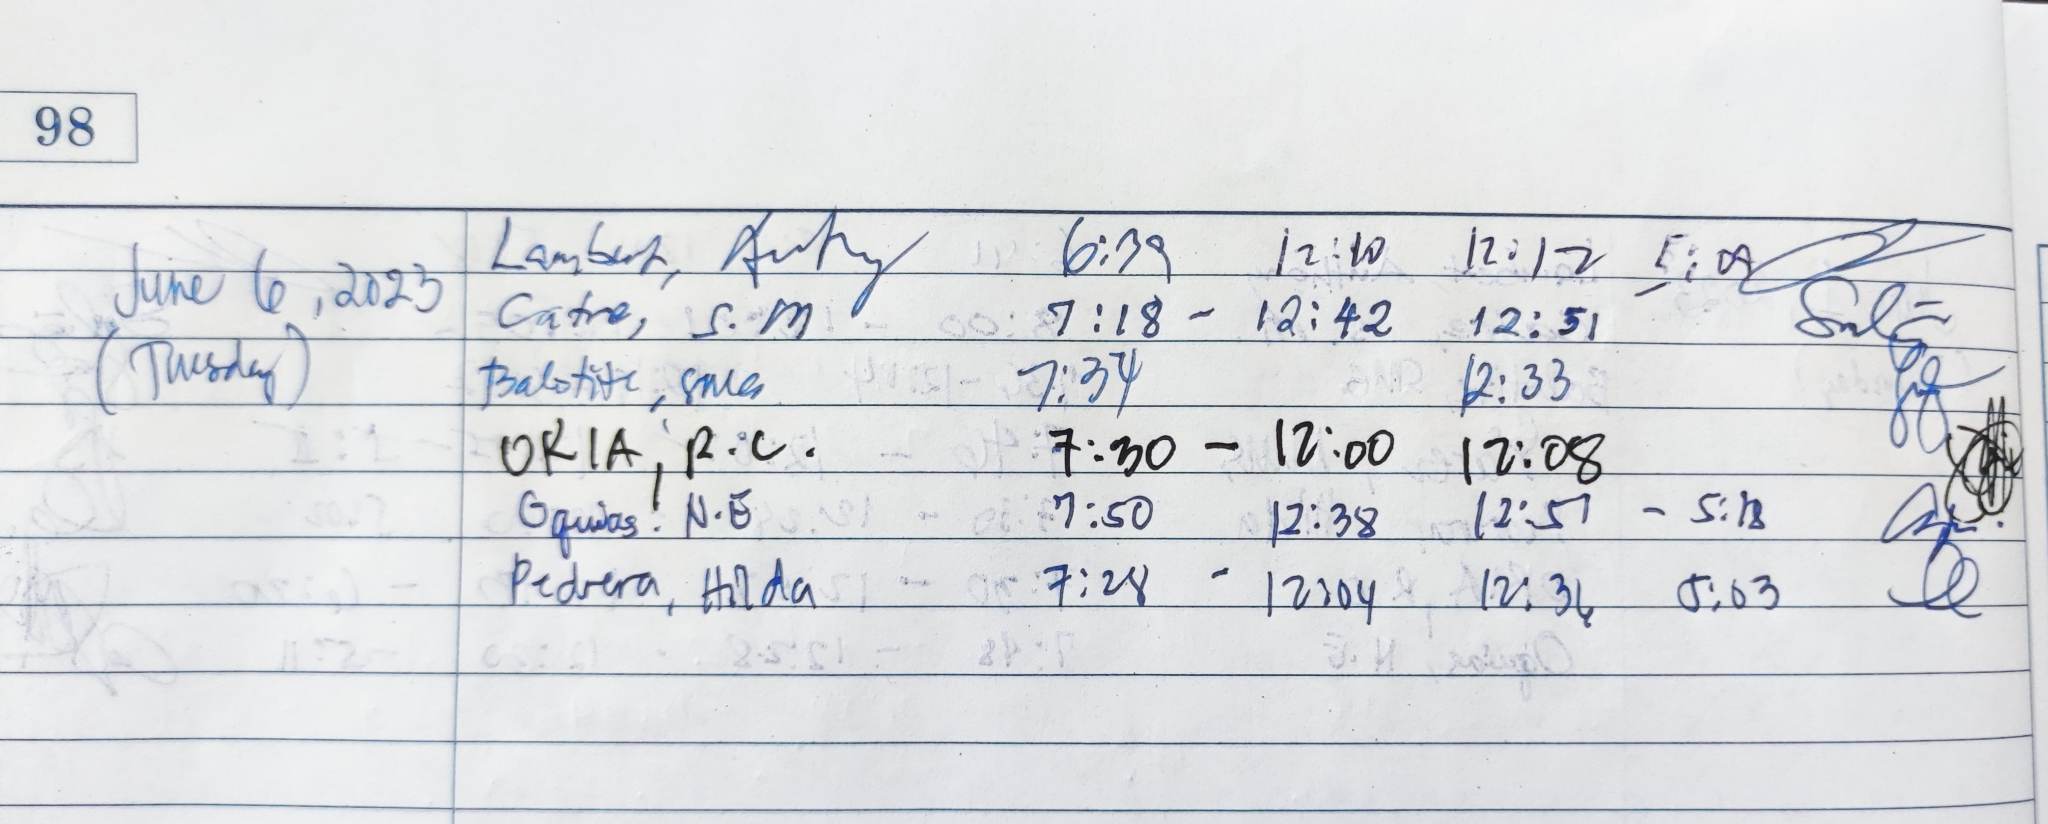 98
June 6, 2023
(Tuesday)
Lambert, 6:39 12:10 12:12 5:09
Catre, S.M 7:18 - 12:42 12:51
Balotite, 7:34 12:33
ORIA, R.C. 7:30 - 12:00 12:08
Oquias, N.E 7:50 12:38 12:51 - 5:18
Pedrera, Hilda 7:28 - 12:04 12:36 5:03